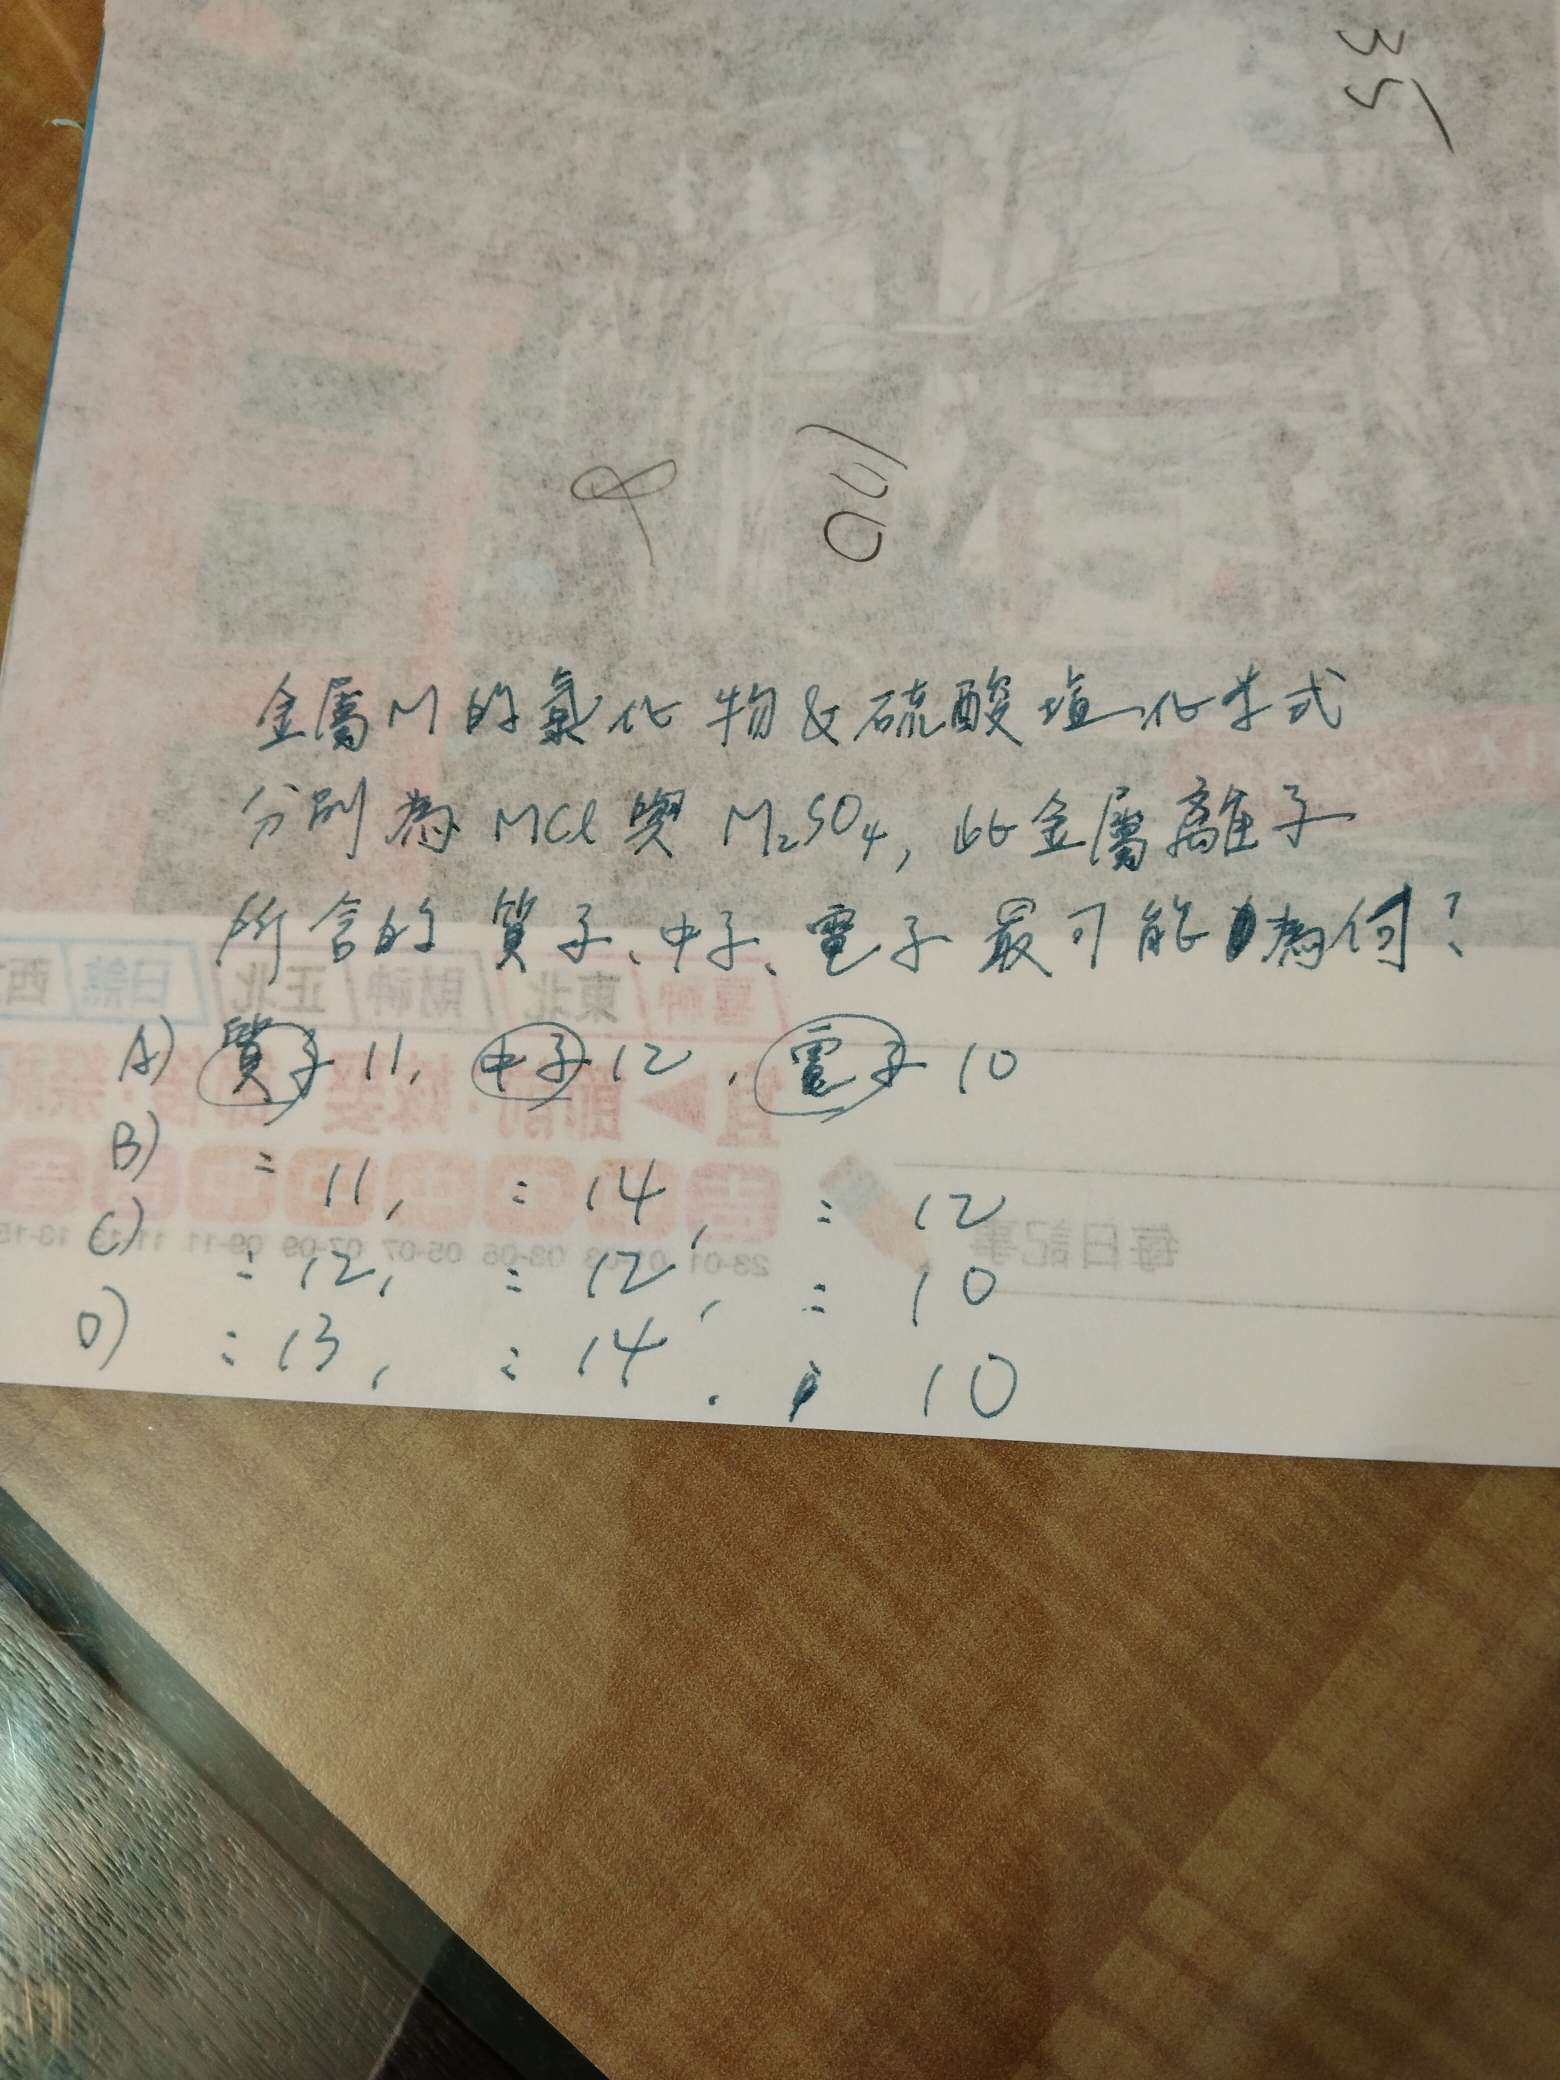 35
100
8
金屬M的氯化物&硫酸塩化学式
分別為MCl與M₂SO₄,此金屬離子
所含的質子、中子、電子最可能為何?
A) 質子 11, 中子 12, 電子 10
B) = 11, = 14, = 12
C) = 12, = 12, = 10
D) = 13, = 14, 10
喜神 東北 財神 正北 日煞 西
每日記事
23-01 01-03 03-05 05-07 07-09 09-11 11-13 13-15